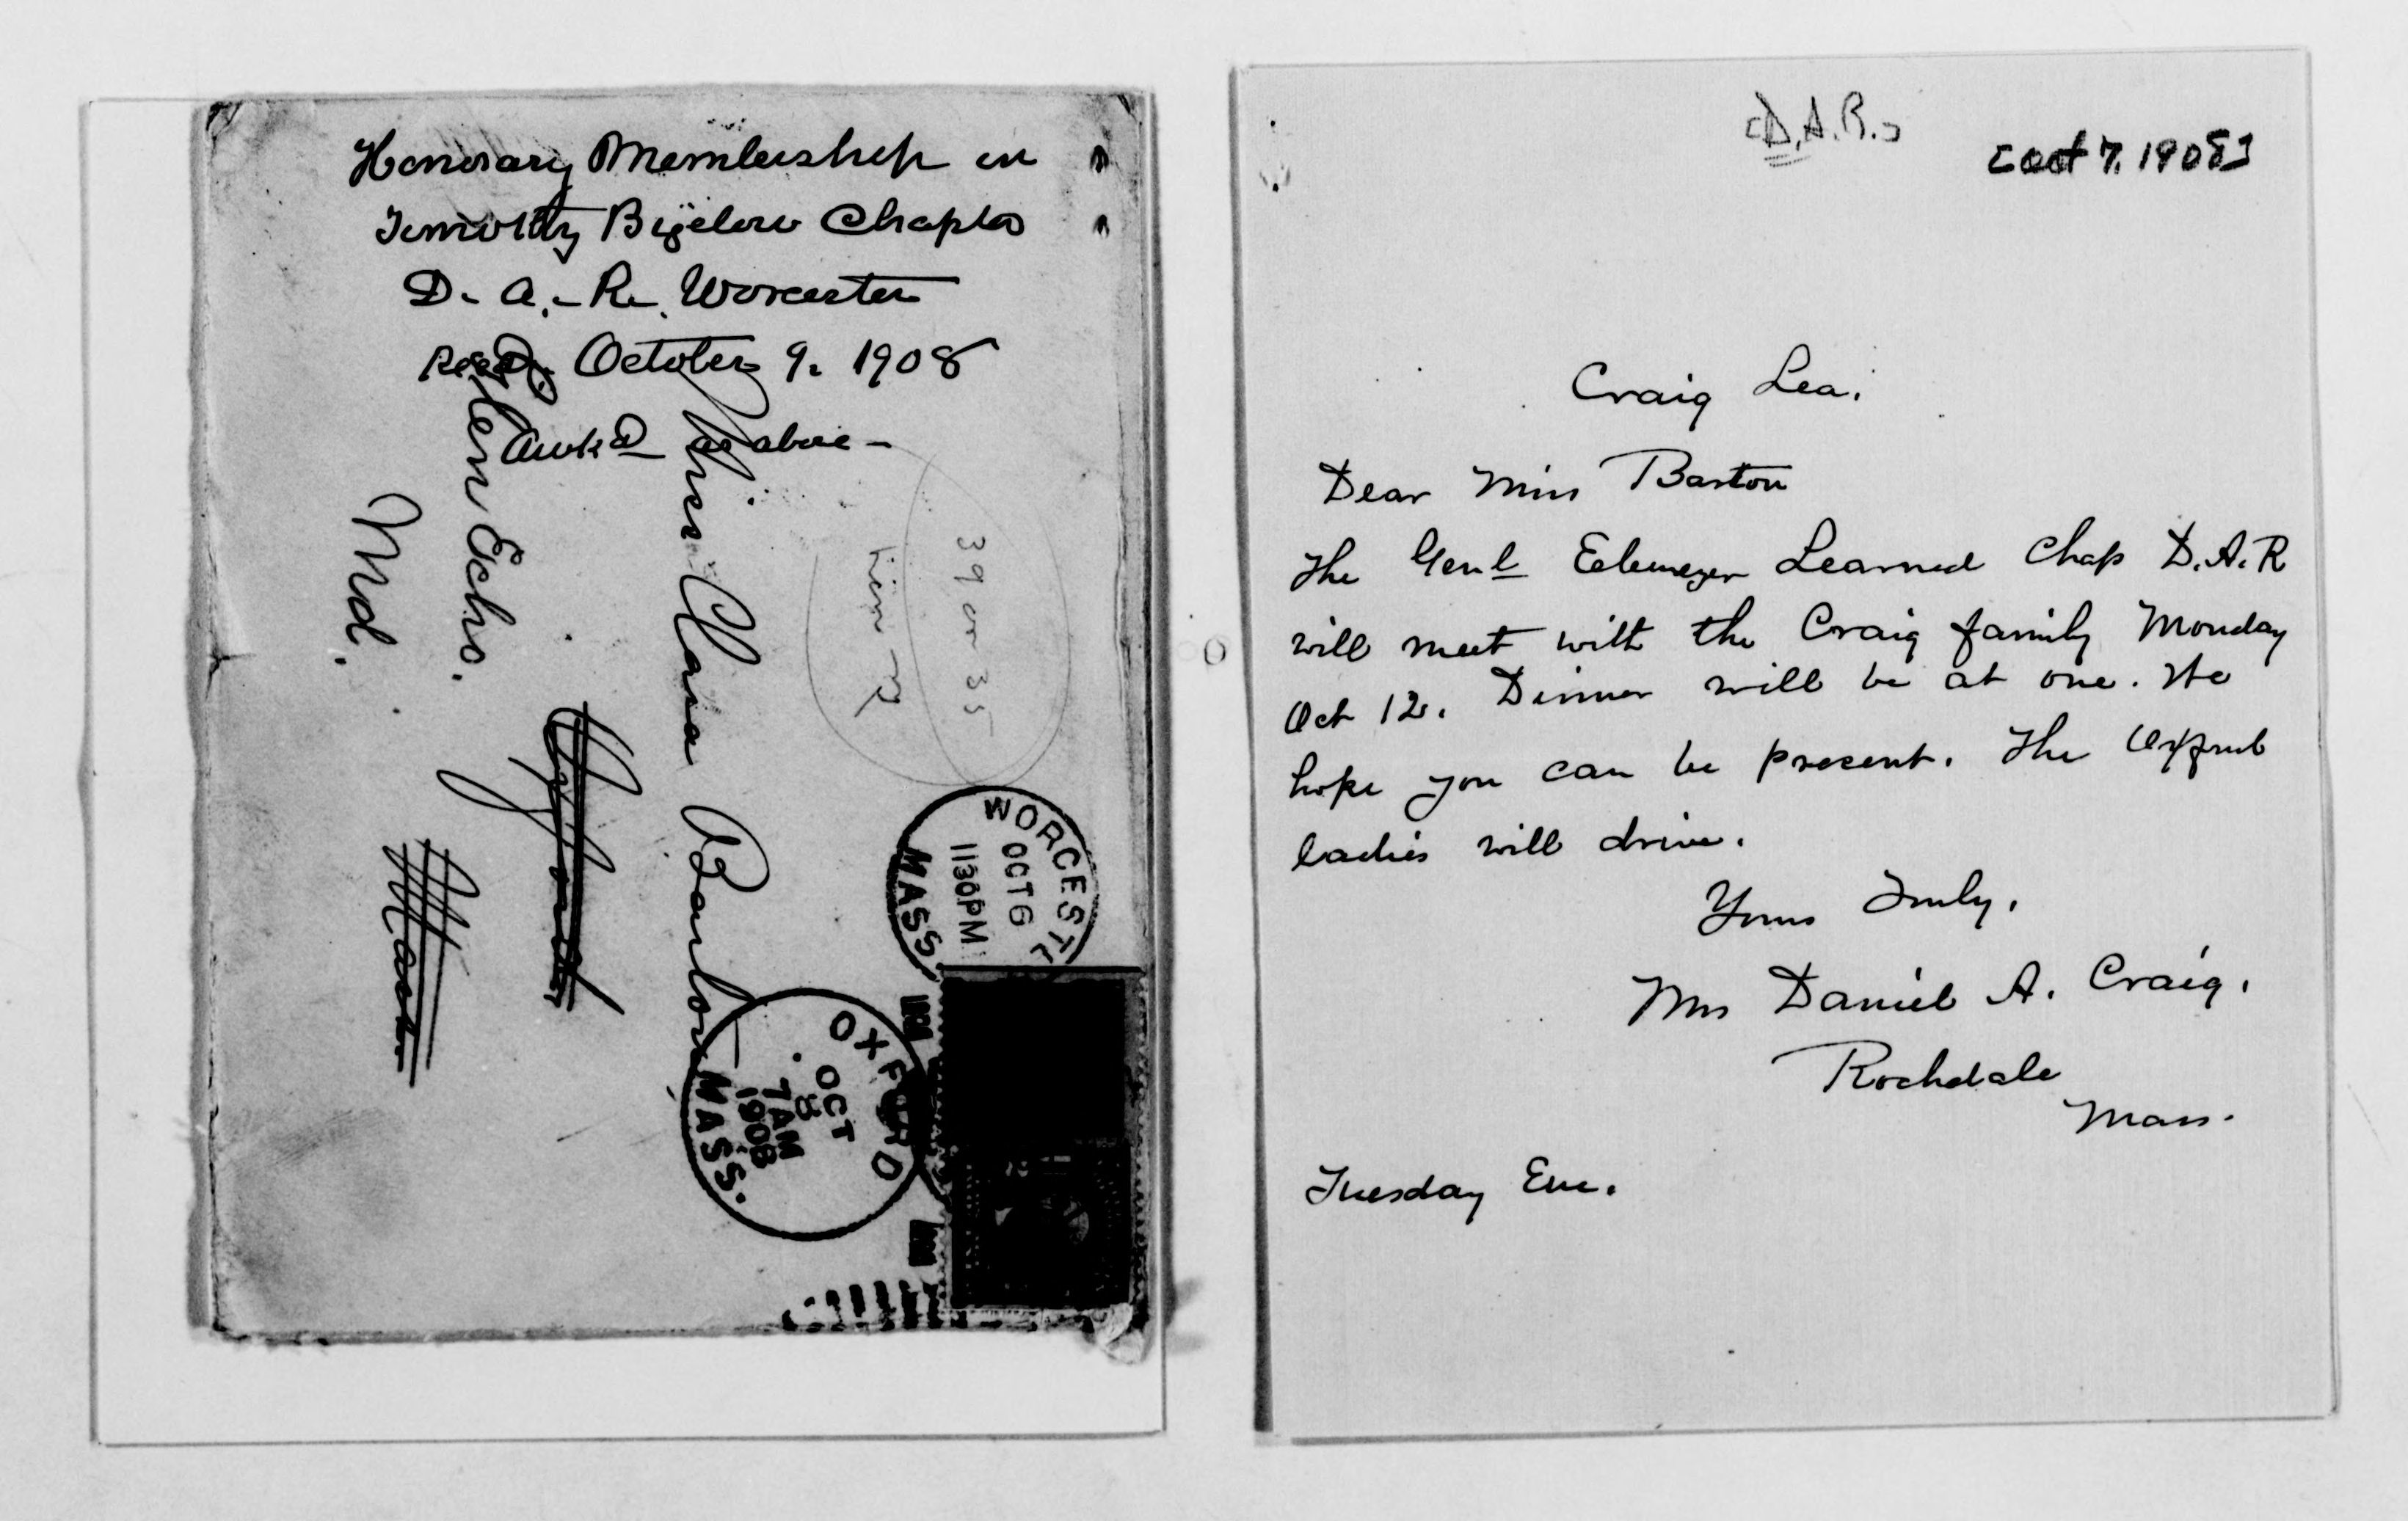 Honorary Membership in
Timothy Bigelow Chapter
D. A. R. Worcester
Recd. October 9. 1908
Awkd as above -
Miss Clara Barton
Oxford
Mass.
Glen Echo.
Md.
39 or 35
WORCEST
OCT 6
1130PM
MASS.
OXFORD
OCT
8
7AM
1908
MASS.
[D.A.R.]
[Oct 7. 1908]
Craig Lea.
Dear Miss Barton
The Genl Ebenezer Learned Chap D.A.R
will meet with the Craig family Monday
Oct 12. Dinner will be at one. We
hope you can be present. The Oxford
ladies will drive.
Yours Truly,
Mrs Daniel A. Craig.
Rochdale
Mass.
Tuesday Eve.